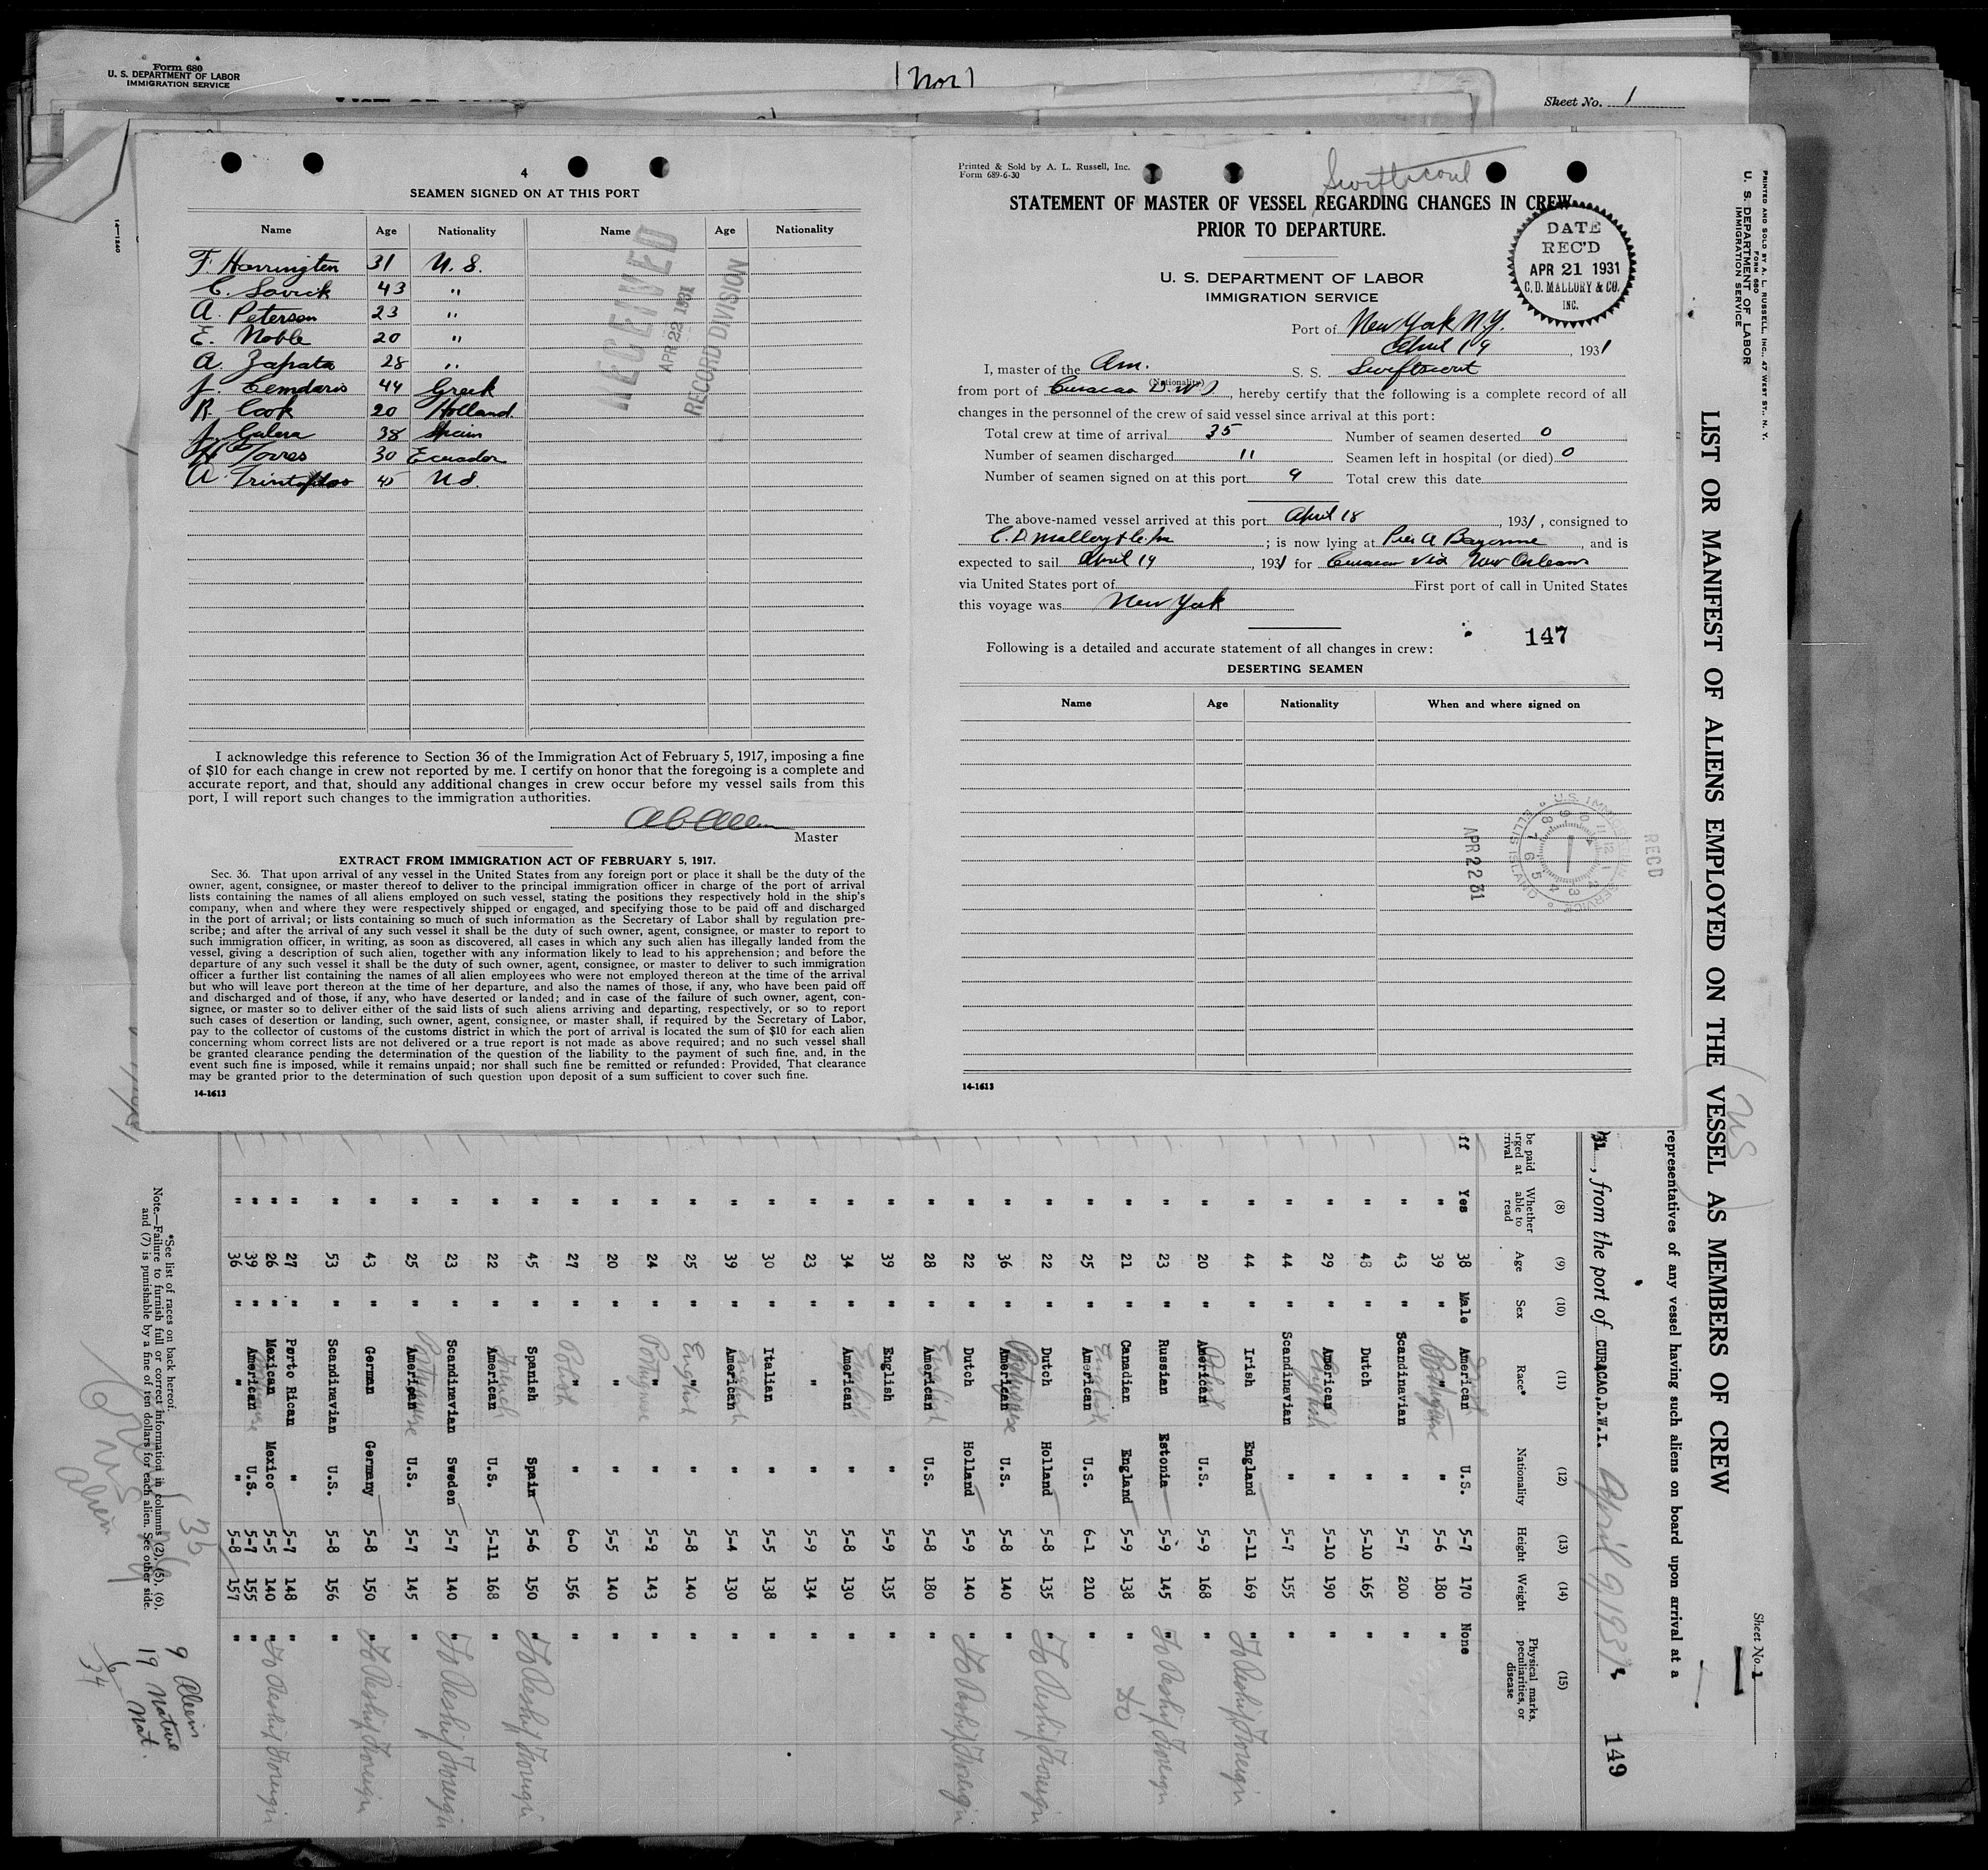 Form 680
U. S. DEPARTMENT OF LABOR
IMMIGRATION SERVICE
Sheet No. 1
4
SEAMEN SIGNED ON AT THIS PORT
Name Age Nationality Name Age Nationality
F. Harrington 31 U. S.
C. Sovick 43 "
A. Peterson 23 "
E. Noble 20 "
A. Zapata 28 "
J. 44 Greek
R. Cook 20 Holland
J. Galera 38 Spain
Torres 30 Ecuador
A.
RECEIVED
APR 22 1931
RECORD DIVISION
I acknowledge this reference to Section 36 of the Immigration Act of February 5, 1917, imposing a fine
of $10 for each change in crew not reported by me. I certify on honor that the foregoing is a complete and
accurate report, and that, should any additional changes in crew occur before my vessel sails from this
port, I will report such changes to the immigration authorities.
Master
EXTRACT FROM IMMIGRATION ACT OF FEBRUARY 5, 1917.
Sec. 36. That upon arrival of any vessel in the United States from any foreign port or place it shall be the duty of the
owner, agent, consignee, or master thereof to deliver to the principal immigration officer in charge of the port of arrival
lists containing the names of all aliens employed on such vessel, stating the positions they respectively hold in the ship's
company, when and where they were respectively shipped or engaged, and specifying those to be paid off and discharged
in the port of arrival; or lists containing so much of such information as the Secretary of Labor shall by regulation pre-
scribe; and after the arrival of any such vessel it shall be the duty of such owner, agent, consignee, or master to report to
such immigration officer, in writing, as soon as discovered, all cases in which any such alien has illegally landed from the
vessel, giving a description of such alien, together with any information likely to lead to his apprehension; and before the
departure of any such vessel it shall be the duty of such owner, agent, consignee, or master to deliver to such immigration
officer a further list containing the names of all alien employees who were not employed thereon at the time of the arrival
but who will leave port thereon at the time of her departure, and also the names of those, if any, who have been paid off
and discharged and of those, if any, who have deserted or landed; and in case of the failure of such owner, agent, con-
signee, or master so to deliver either of the said lists of such aliens arriving and departing, respectively, or so to report
such cases of desertion or landing, such owner, agent, consignee, or master shall, if required by the Secretary of Labor,
pay to the collector of customs of the customs district in which the port of arrival is located the sum of $10 for each alien
concerning whom correct lists are not delivered or a true report is not made as above required; and no such vessel shall
be granted clearance pending the determination of the question of the liability to the payment of such fine, and, in the
event such fine is imposed, while it remains unpaid; nor shall such fine be remitted or refunded: Provided, That clearance
may be granted prior to the determination of such question upon deposit of a sum sufficient to cover such fine.
14-1613
Printed & Sold by A. L. Russell, Inc.
Form 689-6-30
Swiftscout
STATEMENT OF MASTER OF VESSEL REGARDING CHANGES IN CREW
PRIOR TO DEPARTURE.
DATE
REC'D
APR 21 1931
C. D. MALLORY & CO.
INC.
U. S. DEPARTMENT OF LABOR
IMMIGRATION SERVICE
Port of New York N.Y.
April 19 1931
I, master of the Am. S. S. Swiftscout
(Nationality)
from port of Curacao D.W.I, hereby certify that the following is a complete record of all
changes in the personnel of the crew of said vessel since arrival at this port:
Total crew at time of arrival 35 Number of seamen deserted 0
Number of seamen discharged 11 Seamen left in hospital (or died) 0
Number of seamen signed on at this port 9 Total crew this date
The above-named vessel arrived at this port April 18, 1931, consigned to
C. D. Mallory & Co. Inc; is now lying at Pier A Bayonne and is
expected to sail April 19, 1931 for Curacao via New Orleans
via United States port of First port of call in United States
this voyage was New York
147
Following is a detailed and accurate statement of all changes in crew:
DESERTING SEAMEN
Name Age Nationality When and where signed on
APR 22 31
U.S. IMMIGRATION SERVICE ELLIS ISLAND
REC'D
14-1613
PRINTED AND SOLD BY A. L. RUSSELL, INC., 47 WEST ST., N. Y.
FORM 680
U. S. DEPARTMENT OF LABOR
IMMIGRATION SERVICE
LIST OR MANIFEST OF ALIENS EMPLOYED ON THE VESSEL AS MEMBERS OF CREW
Sheet No. 1
representatives of any vessel having such aliens on board upon arrival at a
31, from the port of CURACAO, D.W.I. April 9 1931
149
(8) (9) (10) (11) (12) (13) (14) (15)
Whether able to read Age Sex Race* Nationality Height Weight Physical marks, peculiarities, or disease
Yes 38 Male American U.S. 5-7 170 None
" 39 " " Portuguese " 5-6 180 "
" 43 " Scandinavian " 5-7 200 "
" 48 " Dutch " 5-10 165 "
" 29 " American English " 5-10 190 "
" 44 " Scandinavian " 5-7 155 "
" 44 " Irish England 5-11 169 " To Reship Foreign
" 20 " American U.S. 5-9 168 "
" 23 " Russian Estonia 5-9 145 " To Reship Foreign
" 21 " Canadian England 5-9 138 " do
" 25 " American English U.S. 6-1 210 "
" 22 " Dutch Holland 5-8 135 " To Reship Foreign
" 36 " American Portuguese U.S. 5-8 140 "
" 22 " Dutch Holland 5-9 140 " To Reship Foreign
" 28 " American English U.S. 5-8 180 "
" 39 " English " 5-9 135 "
" 34 " American English " 5-8 130 "
" 23 " " " 5-9 134 "
" 30 " Italian " 5-5 138 "
" 39 " American English " 5-4 130 "
" 25 " " English " 5-8 140 "
" 24 " " Portuguese " 5-2 143 "
" 20 " " " 5-5 140 "
" 27 " " Polish " 6-0 156 "
" 45 " Spanish Spain 5-6 150 " To Reship Foreign
" 22 " American French U.S. 5-11 168 "
" 23 " Scandinavian Sweden 5-7 140 " To Reship Foreign
" 25 " American Portuguese U.S. 5-7 145 "
" 43 " German Germany 5-8 150 " To Reship Foreign
" 53 " Scandinavian U.S. 5-8 156 "
" 27 " Porto Rican " 5-7 148 "
" 26 " Mexican Mexico 5-5 140 " To Reship Foreign
" 39 " American U.S. 5-7 155 "
" 36 " " " 5-8 157 "
*See list of races on back hereof.
Note.—Failure to furnish full or correct information in columns (2), (5), (6),
and (7) is punishable by a fine of ten dollars for each alien. See other side.
35
9 Alien
19 Native
6 Nat.
34